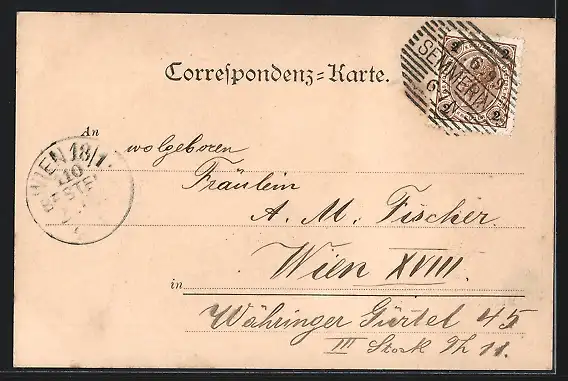 Correspondenz-Karte.
SEMMERING
2 2
2 2
WIEN 18/1
BESTE
An
wolgeboren
Fräulein
A. M. Fischer.
in
Wien XVIII.
Währinger Gürtel 45
III Stock Th 11.